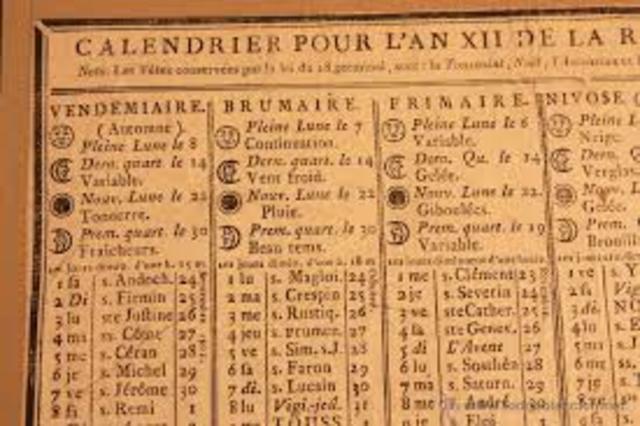 CALENDRIER POUR L'AN XII DE LA R
Nota. Les Fêtes conservées par la loi du 18 germinal, sont: la Toussaint, Noël, l'Ascension et
VENDEMIAIRE.
(Automne)
Pleine Lune le 8
Dern. quart. le 14
Variable.
Nouv. Lune le 22
Tonnerre.
Prem. quart. le 30
Fraicheurs.
1 sa s. Andoch. 24
2 Di s. Firmin 25
3 lu ste Justine 26
4 ma s. Côme 27
5 me s. Céran 28
6 je s. Michel 29
7 ve s. Jérôme 30
8 sa s. Remi 1
BRUMAIRE.
Pleine Lune le 7
Continuation.
Dern. quart. le 14
Vent froid.
Nouv. Lune le 22
Pluie.
Prem. quart. le 30
Beau tems.
1 lu s. Magloi. 24
2 ma s. Crespin 25
3 me s. Rustiq. 26
4 jeu s. Frumen. 27
5 ve s. Sim. s.J. 28
6 sa s. Faron 29
7 di. s. Lucain 30
8 lu Vigi-jeû. 31
TOUSS 1
FRIMAIRE.
Pleine Lune le 6
Variable.
Dern. Qu. le 14
Gelée.
Nouv. Lune le 22
Giboulées.
Prem. quart. le 19
Variable.
1 me s. Clément 23
2 je s. Severin 24
3 ve ste Cather. 25
4 sa ste Genev. 26
5 di L'Avent 27
6 lu s. Sosthèn 28
7 ma s. Saturn. 29
8 me s. André 30
s. Eloi 1
NIVOSE
Pleine L
Neige.
Dern. Q
Verglas
Nouv. L
Gelée.
Prem.
Brouill
1 ve s.
2 sa Vig
3 di. N
4 lu s.
5 ma s.
6 me
7 je s.
8 ve s.